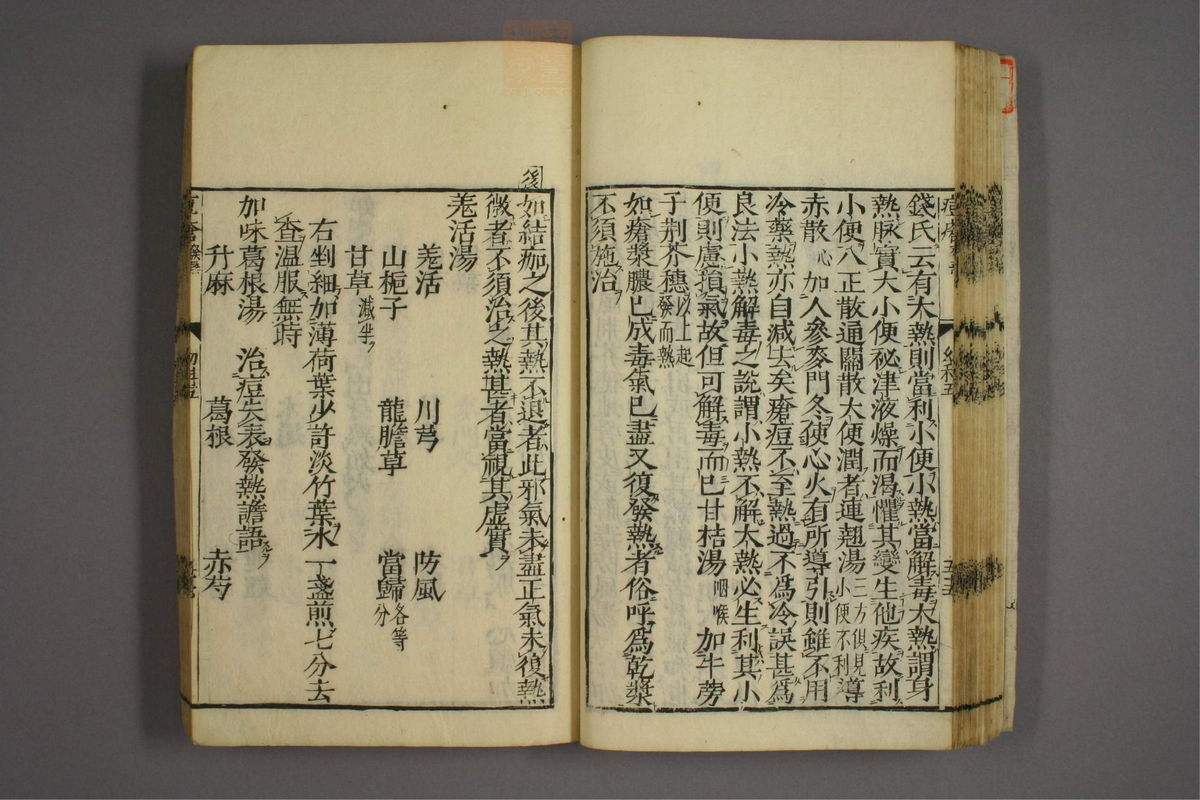 錢氏云有大熱則當利小便小熱當解毒大熱謂身
熱脉實大小便秘津液燥而渴懼其變生他疾故利
小便八正散通關散大便潤者連翹湯三方俱見小便不利導
赤散心加人參麥門冬使心火有所導引則雖不用
冷藥熱亦自減去矣瘡痘不至熱過不爲冷誤甚爲
良法小熱解毒之說謂小熱不解大熱必生利其小
便則慮損氣故但可解毒而巳甘桔湯咽喉加牛蒡
子荆芥穗以上起發而熱
如瘡漿膿巳成毒氣巳盡又復發熱者俗呼爲乾漿
不須施治
後如結痂之後其熱不退者此邪氣未盡正氣未復熱
微者不須治之熱甚者當視其虛實
羗活湯
羗活 川芎 防風
山梔子 龍膽草 當歸各等分
甘草減半
右剉細加薄荷葉少許淡竹葉水一盞煎七分去
查溫服無時
加味葛根湯 治痘失表發熱譫語
升麻 葛根 赤芍